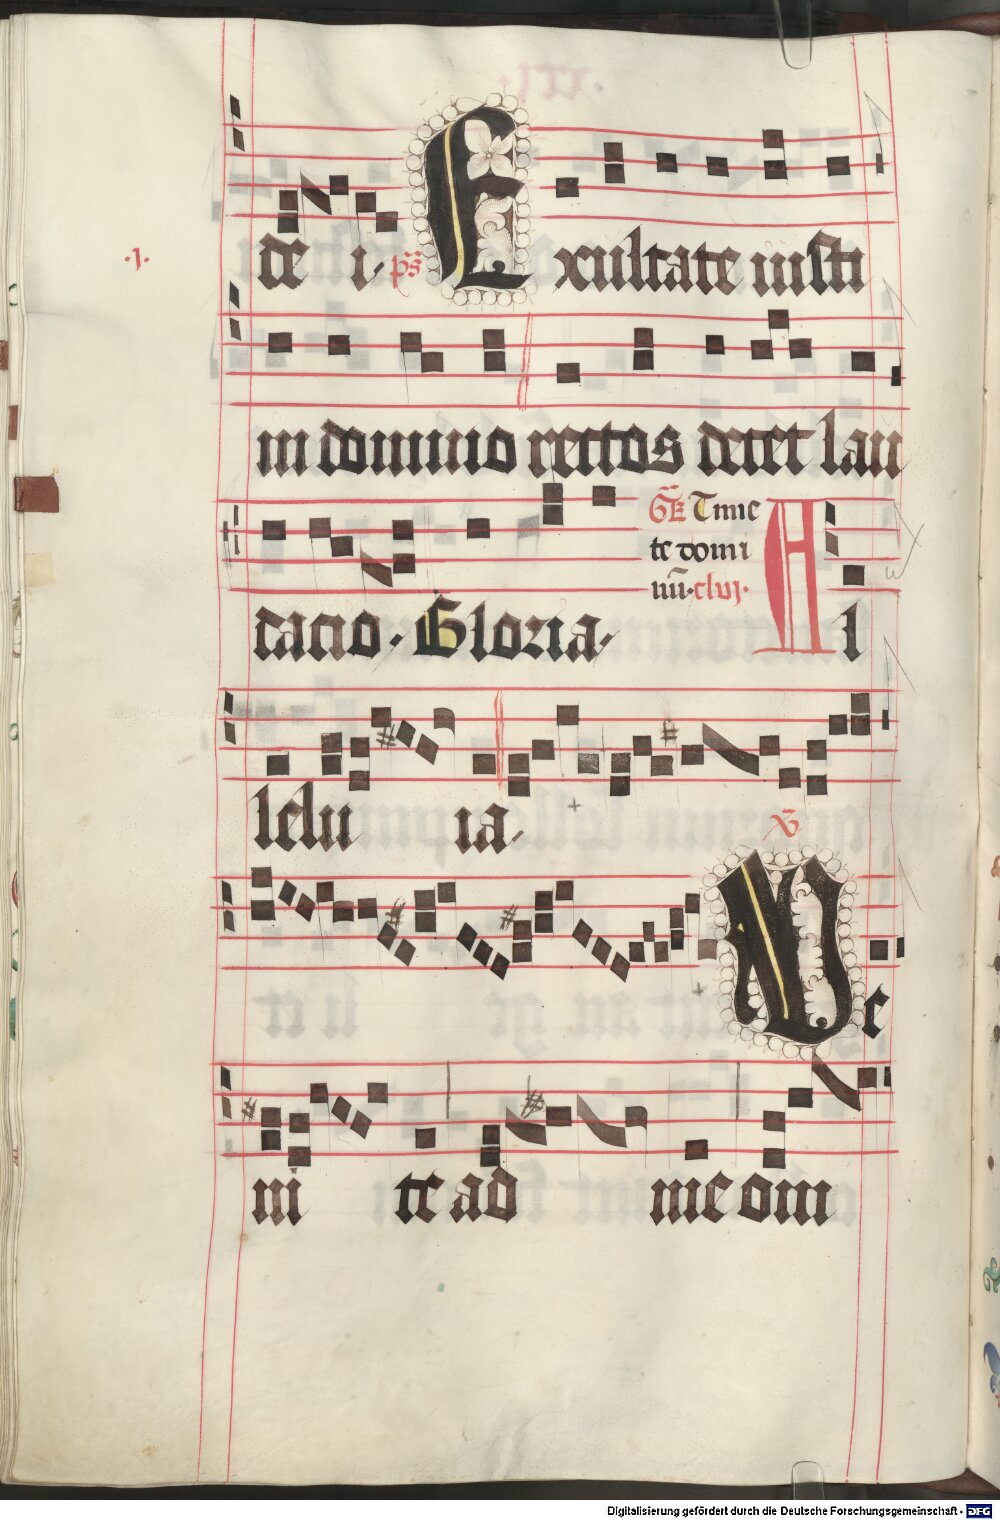 ·j·
dei· ps̄ Exultate iusti
in domino rectos decet lau
datio· Gloria·
GR̄ Time
te domi
nū· clvj·
Al
lelu ia·
V̄ Ve
ni te ad me om
Digitalisierung gefördert durch die Deutsche Forschungsgemeinschaft - DFG